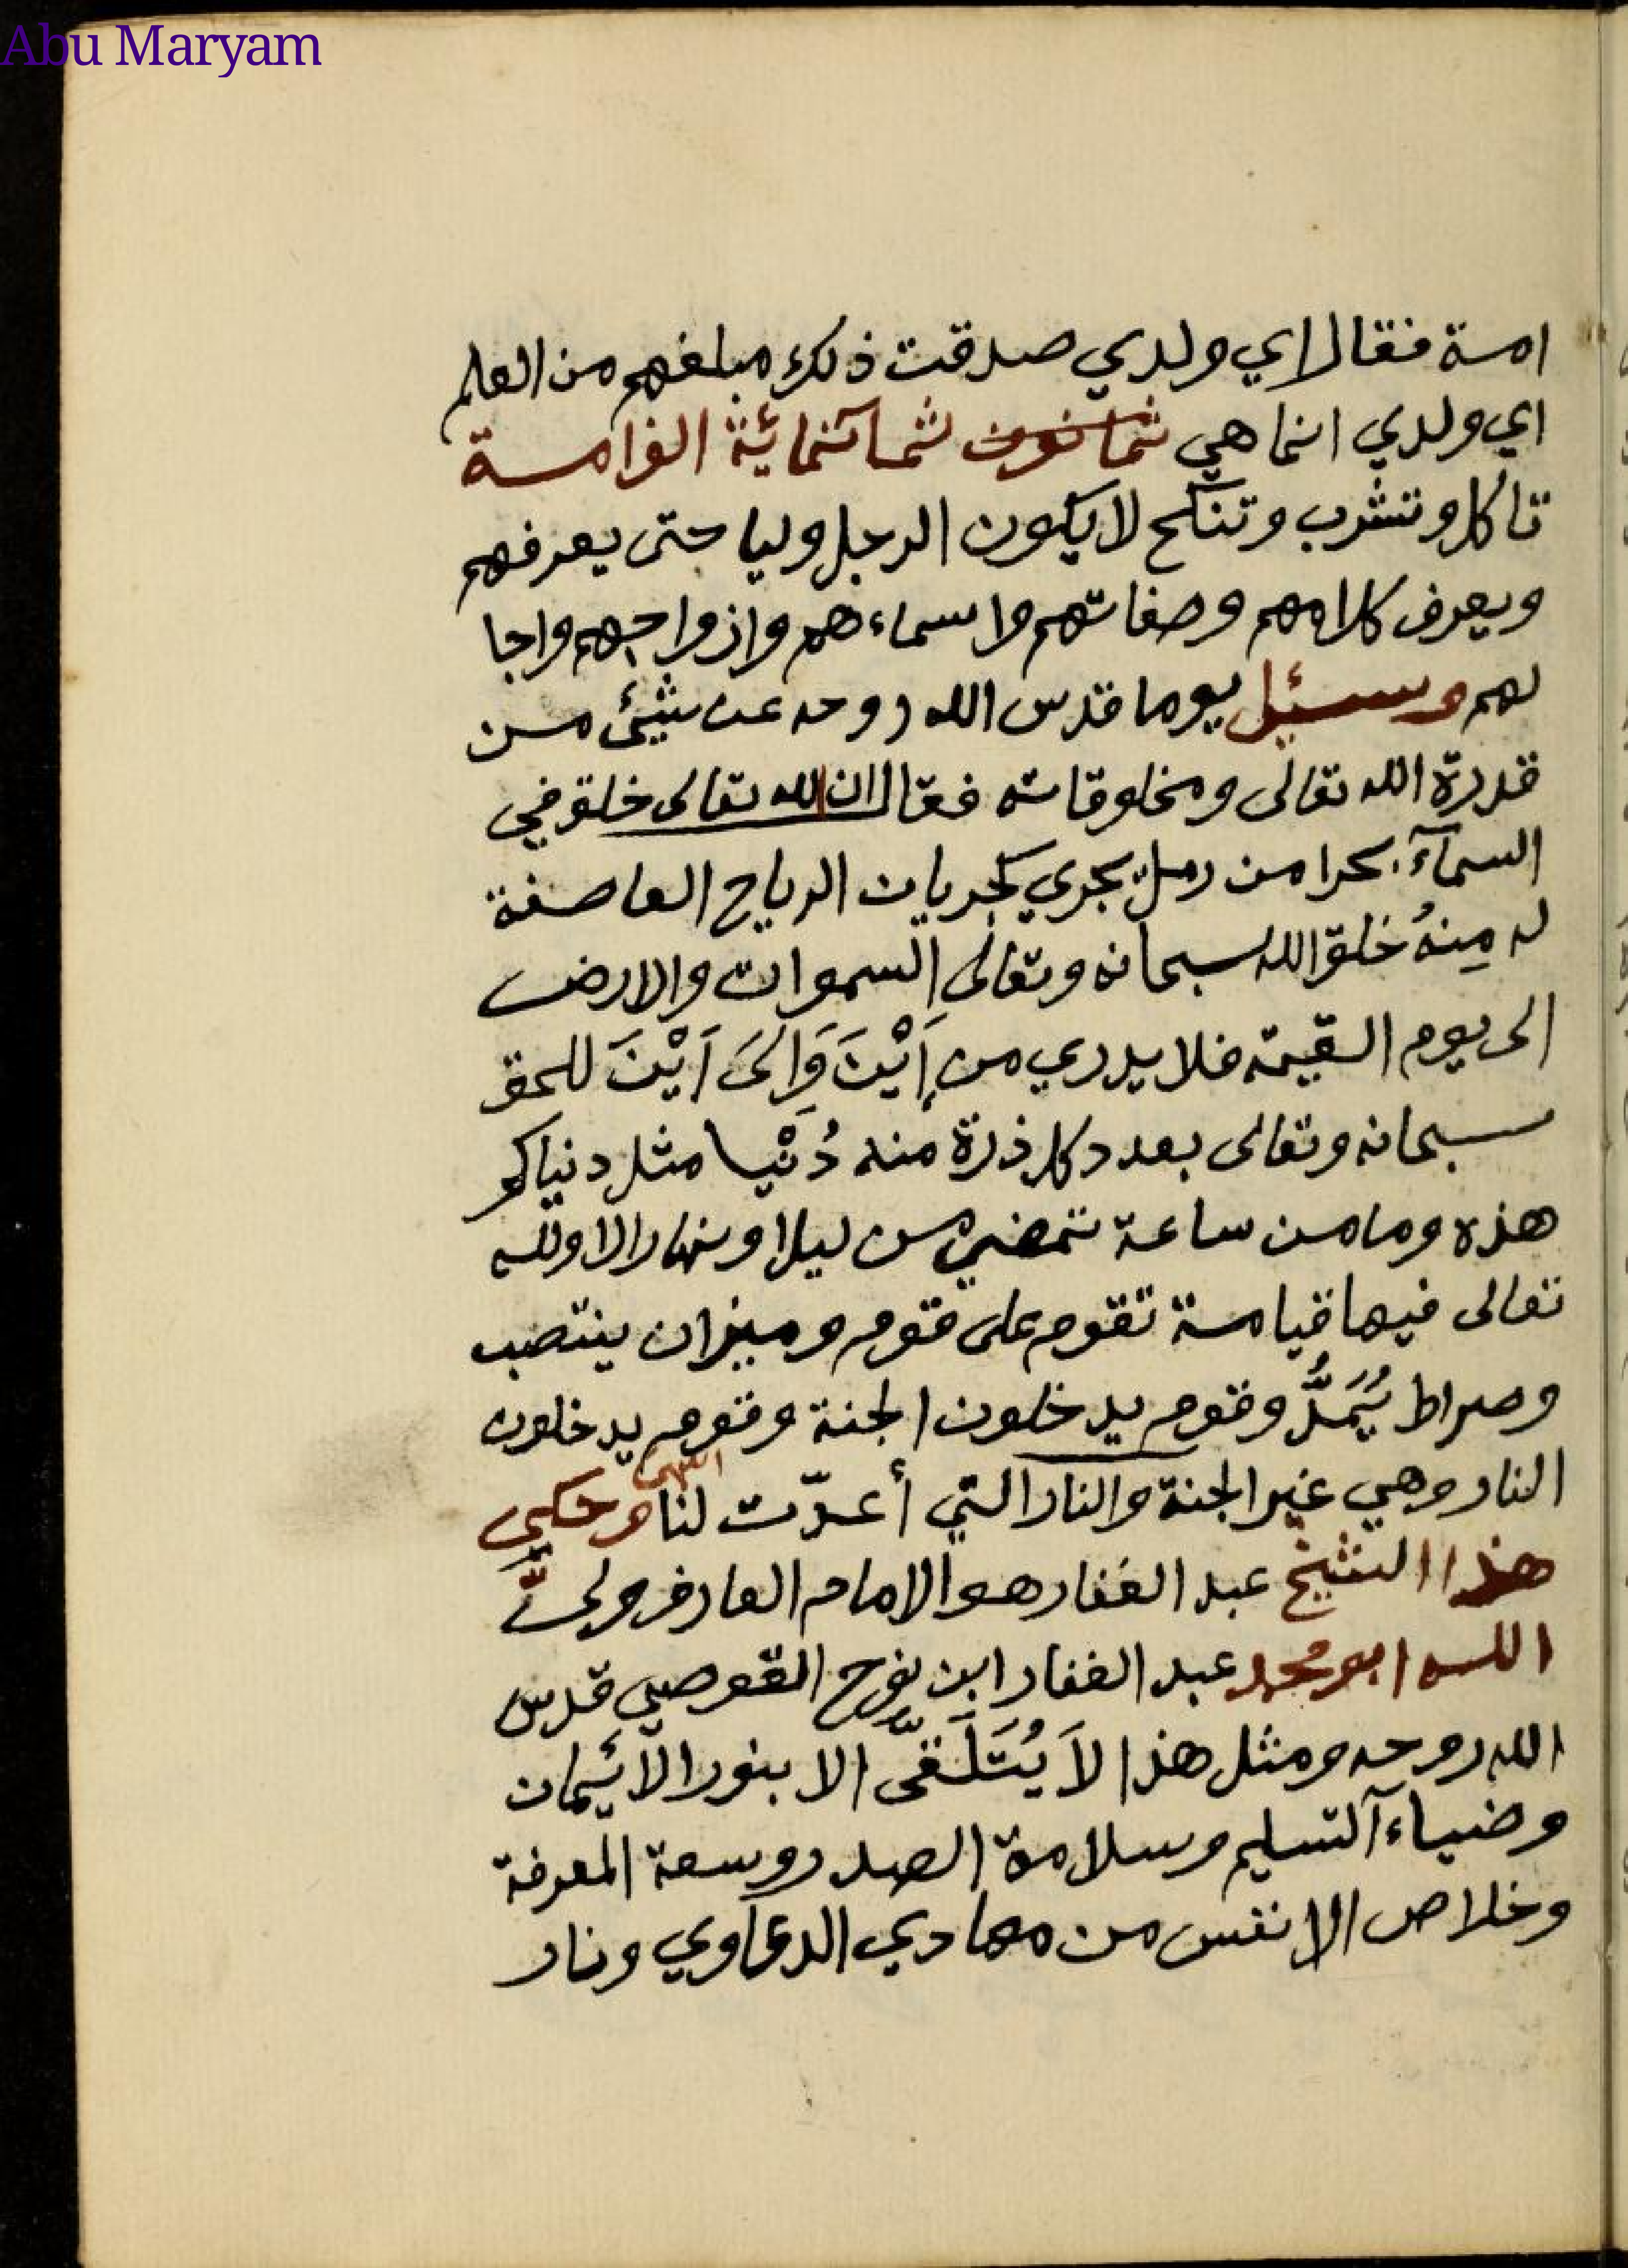 Abu Maryam
امة فقال اي ولدي صدقت ذلك مبلغهم من العلم
اي ولدي انما هي ثمانون ثمانمائية الف امة
تاكل وتشرب وتنكح لا يكون الرجل وليا حتى يعرفهم
ويعرف كلامهم وصفاتهم واسماءهم وازواجهم واجا
لهم وسئيل يوما قدس الله روحه عن شيئ من
قدرة الله تعالى ومخلوقاته فقال ان لله تعالى خلق في
السمآء بحرا من رمل يجري كجريان الرياح العاصفة
له مِنهُ خلق الله سبحانه وتعالى السموات والارض
الى يوم القيمة فلا يدري من اَيْنَ وَالَىَ اَيْنَ للحق
سبحانه وتعالى بعدد كل ذرة منه دُنْيا مثل دنياكم
هذه وما من ساعة تمضي من ليل او نهار الا ولله
تعالى فيها قيامة تقوم على قوم وميزان ينتصب
وصراط يُمَدُّ وقوم يدخلون الجنة وقوم يدخلون
النار وهي غير الجنة والنار التي أعدّت لنا انتهى وحكى
هذا الشيخ عبد الغفار هو الامام العارف ولىّ
الله ابو محمد عبد الغفار ابن نوح القوصي قدس
الله روحه ومثل هذا لاَ يُتَلَقىّ الا بنور الائيمان
وضياء آلتسليم وسلامة الصدر وسعة المعرفة
وخلاص الانفس من مهادي الدعاوي ونار